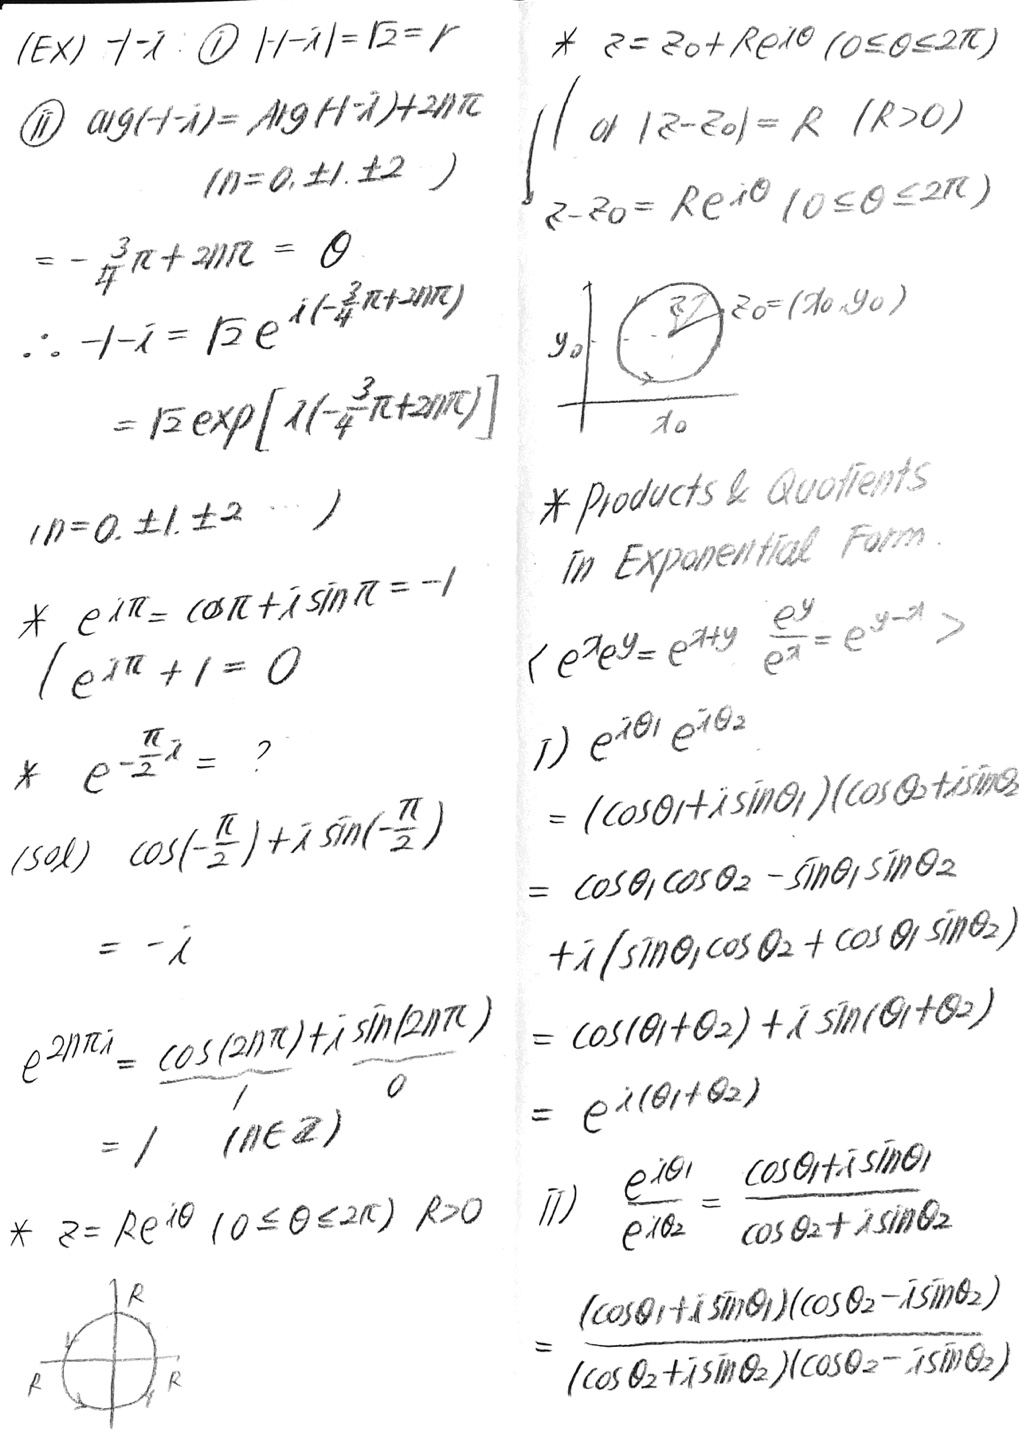 (EX) -1-i : ① |-1-i|=√2=r
ⓘⓘ arg(-1-i)=Arg(-1-i)+2nπ
(n=0. ±1. ±2 )
= -3/4π+2nπ = θ
∴ -1-i = √2 e^{i(-3/4π+2nπ)}
= √2 exp[i(-3/4π+2nπ)]
(n=0. ±1. ±2 ... )
* e^{iπ}= cosπ+i sinπ = -1
( e^{iπ} + 1 = 0
* e^{-π/2 i} = ?
(sol) cos(-π/2)+i sin(-π/2)
= -i
e^{2nπi} = cos(2nπ)+i sin(2nπ)
1 0
= 1 (n∈Z)
* z= Re^{iθ} (0≤θ≤2π) R>0
R
R R
* z= z₀+Re^{iθ} (0≤θ≤2π)
or |z-z₀|= R (R>0)
z-z₀= Re^{iθ} (0≤θ≤2π)
z z₀=(x₀,y₀)
y₀
x₀
* Products & Quotients
in Exponential Form.
< e^x e^y= e^{x+y} e^y/e^x = e^{y-x} >
i) e^{iθ₁} e^{iθ₂}
= (cosθ₁+i sinθ₁)(cosθ₂+i sinθ₂
= cosθ₁cosθ₂ - sinθ₁sinθ₂
+i(sinθ₁cosθ₂ + cosθ₁sinθ₂)
= cos(θ₁+θ₂) + i sin(θ₁+θ₂)
= e^{i(θ₁+θ₂)}
ii) e^{iθ₁}/e^{iθ₂} = (cosθ₁+i sinθ₁)/(cosθ₂+i sinθ₂)
= (cosθ₁+i sinθ₁)(cosθ₂-i sinθ₂)/(cosθ₂+i sinθ₂)(cosθ₂-i sinθ₂)